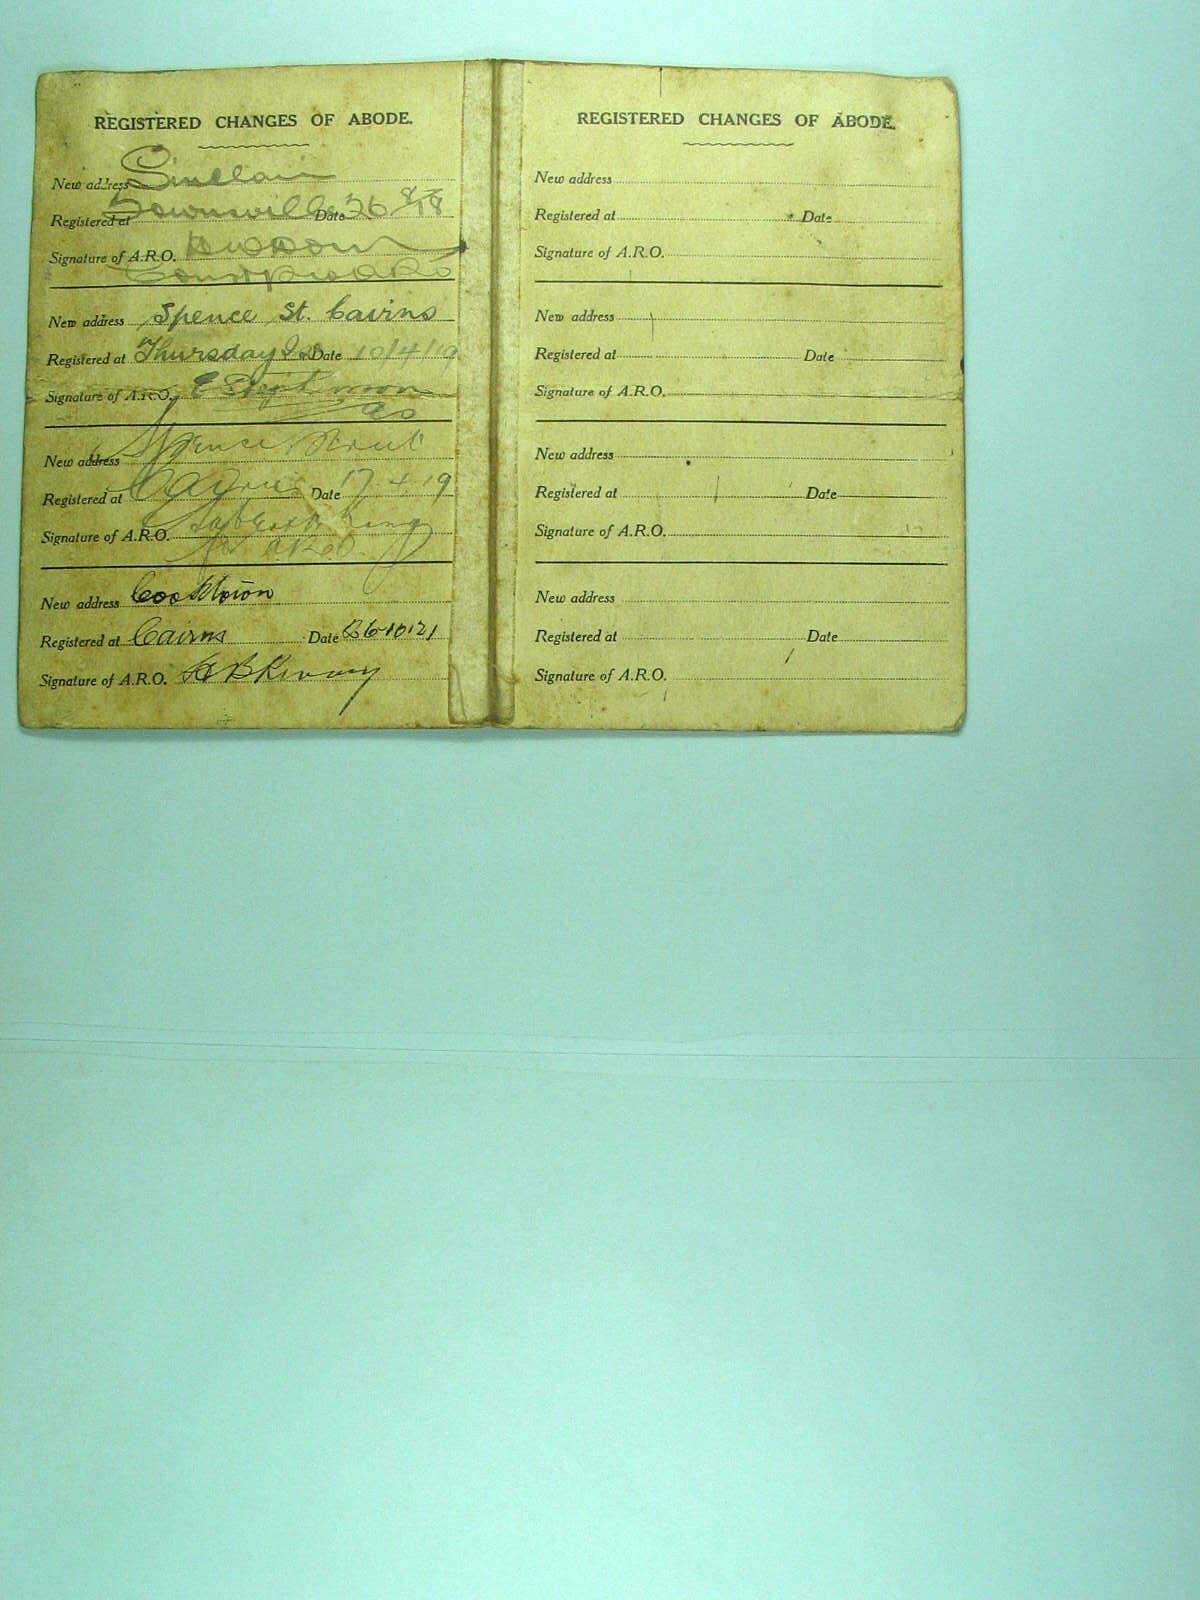 REGISTERED CHANGES OF ABODE.
New address Sinclair
Registered at Townsville Date 26 8/18
Signature of A.R.O.
New address Spence St. Cairns
Registered at Thursday Isd Date 10/4/19
Signature of A.R.O.
New address Spence Street
Registered at Cairns Date 17 4 19
Signature of A.R.O.
New address Cooktown
Registered at Cairns Date 26.10.21
Signature of A.R.O.
REGISTERED CHANGES OF ABODE.
New address
Registered at Date
Signature of A.R.O.
New address
Registered at Date
Signature of A.R.O.
New address
Registered at Date
Signature of A.R.O.
New address
Registered at Date
Signature of A.R.O.